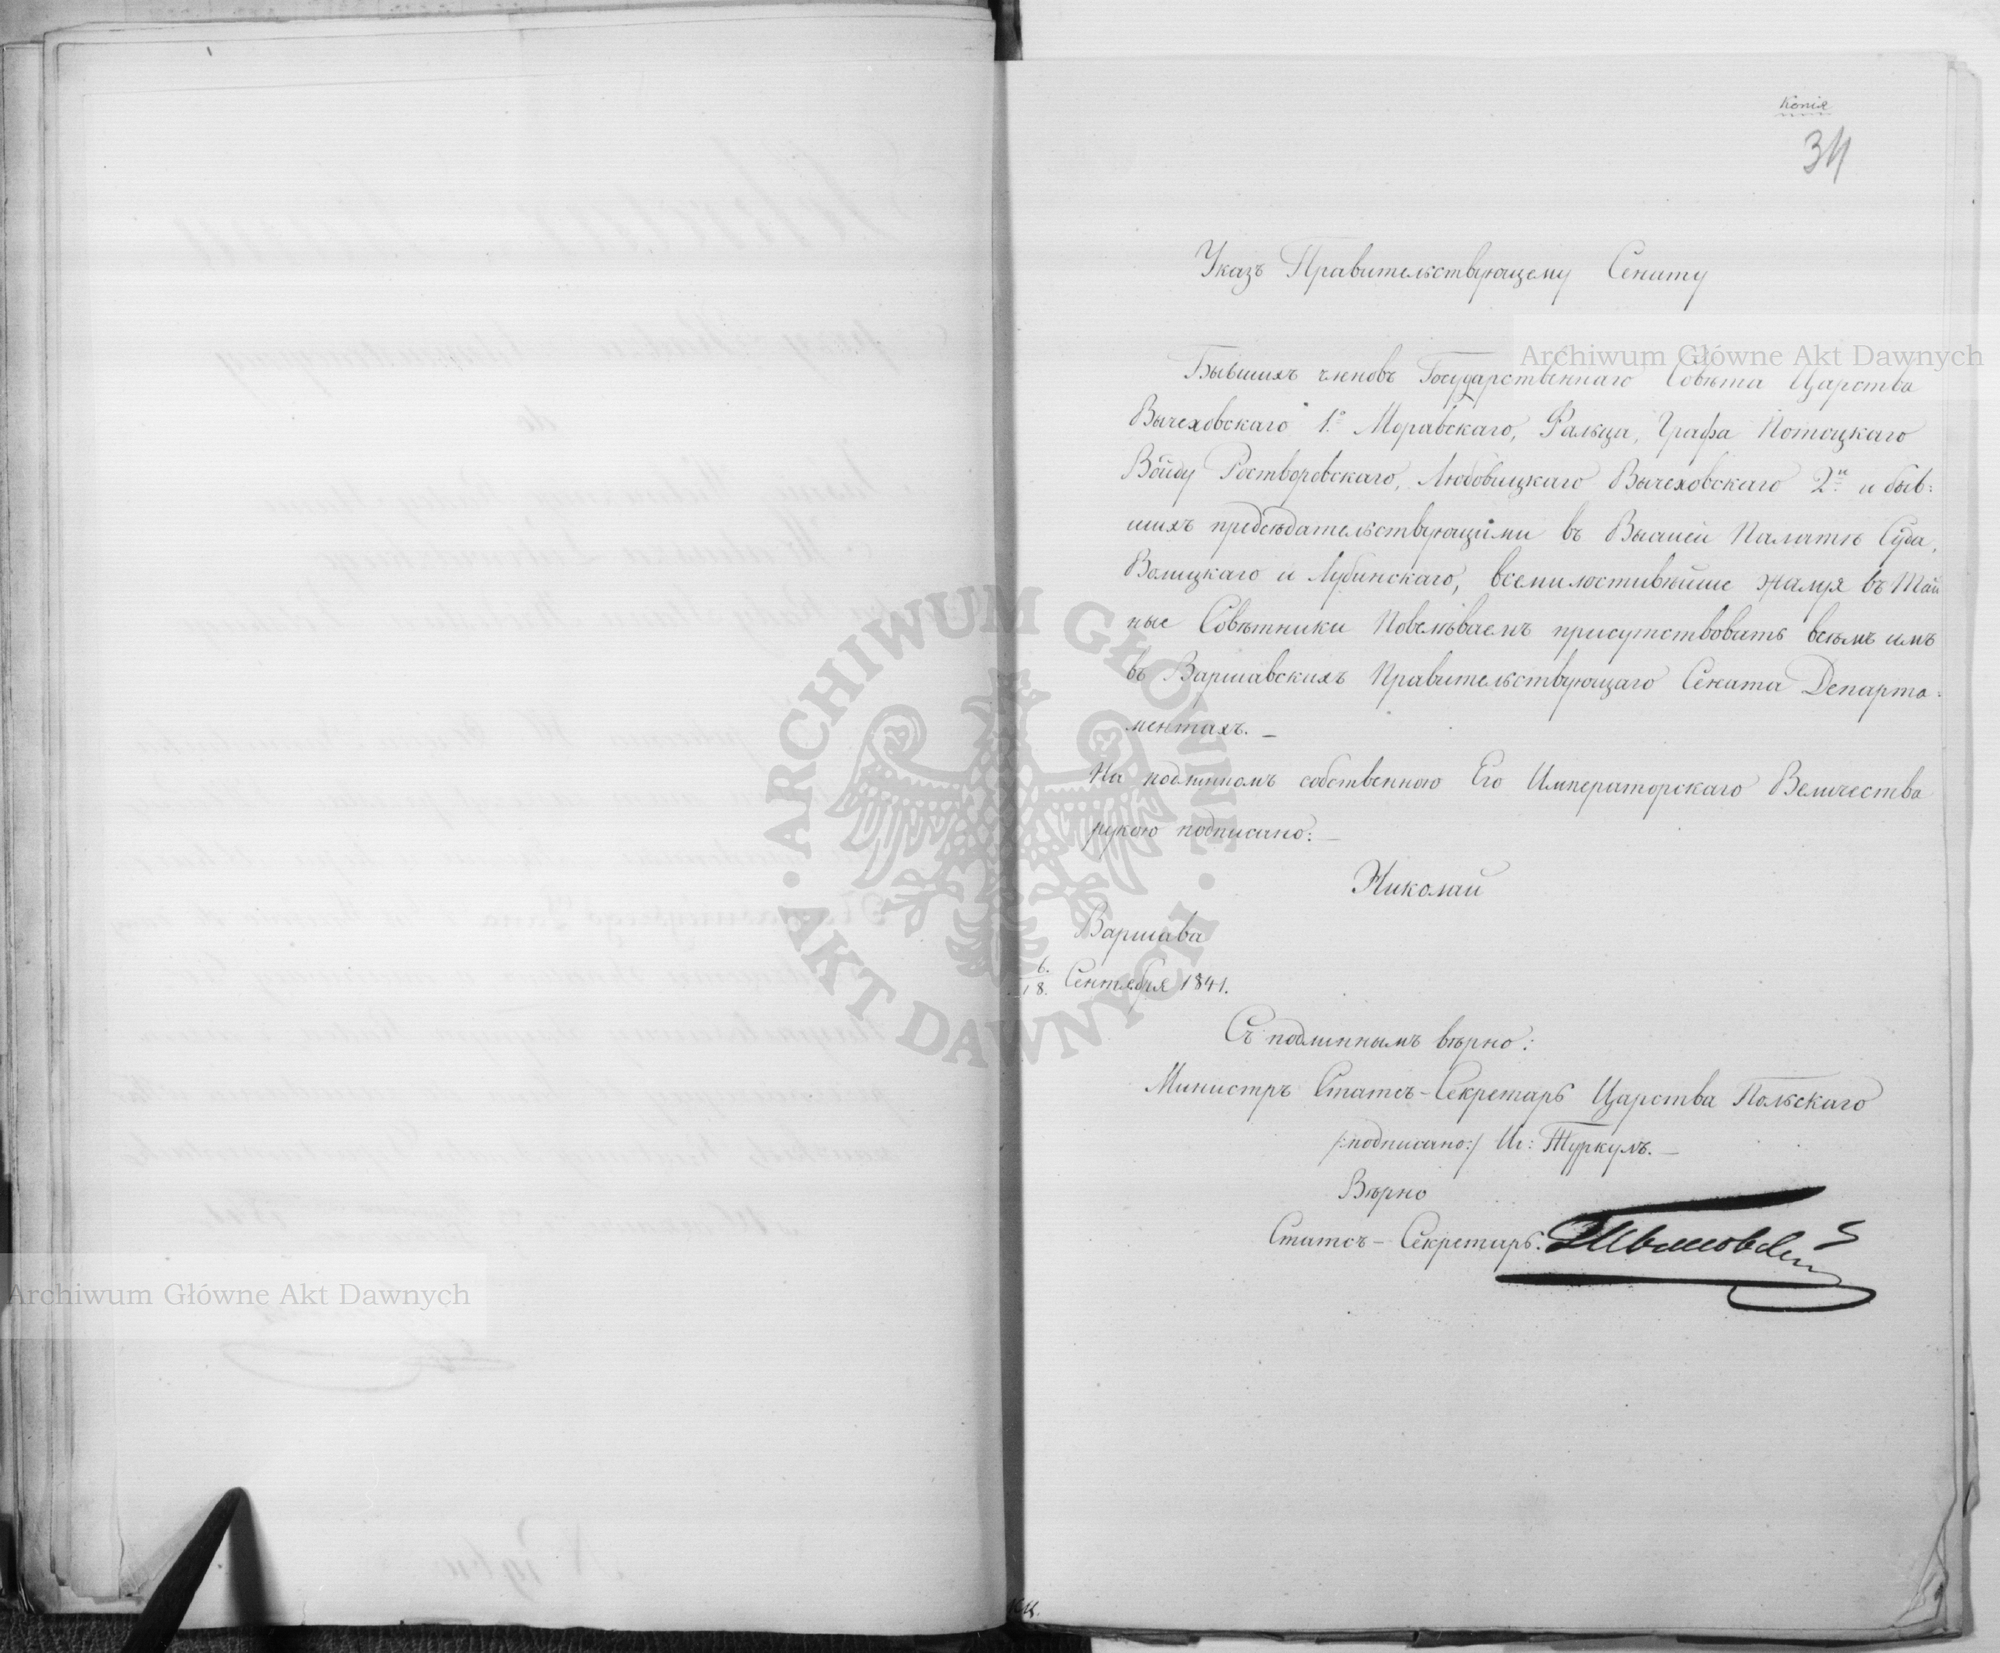 Копія
34
Указъ Правительствующему Сенату
Бывшихъ членовъ Государственнаго Совѣта Царства
Вычеховскаго 1.º Моравскаго, Фальца, Графа Потоцкаго
Войду Ростворовскаго, Любовицкаго Вычеховскаго 2.й и быв:
шихъ предсѣдательствующими въ Высшей Палатѣ Суда,
Волицкаго и Лубинскаго, всемилостивѣйше жалуя въ Тай
ные Совѣтники Повелѣваемъ присутствовать всѣмъ имъ
въ Варшавскихъ Правительствующаго Сената Департа:
ментахъ. —
На подлинномъ собственною Его Императорскаго Величества
рукою подписано: —
Николай
Варшава
6./18. Сентября 1841.
Съ подлиннымъ вѣрно:
Министръ Статсъ-Секретарь Царства Польскаго
/:подписано:/ Иг: Туркулъ. —
Вѣрно
Статсъ-Секретарь.
Archiwum Główne Akt Dawnych
Archiwum Główne Akt Dawnych
ARCHIWUM GŁÓWNE · AKT DAWNYCH ·